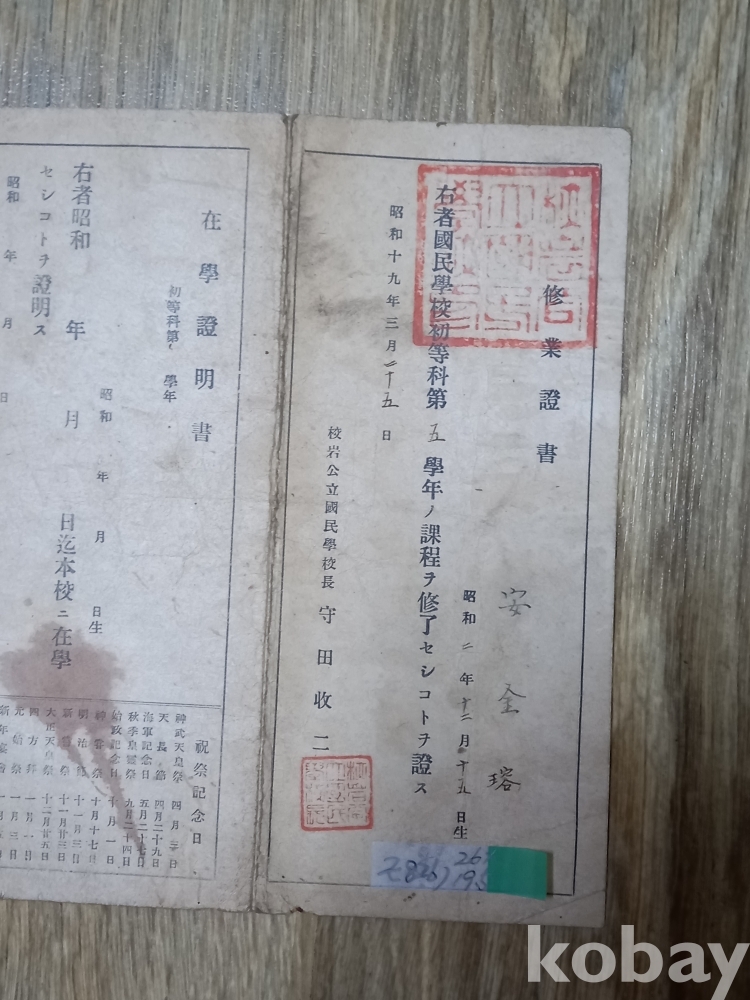 修業證書
安全瑢
昭和二年十二月十五日生
右者國民學校初等科第五學年ノ課程ヲ修了セシコトヲ證ス
昭和十九年三月二十五日
校岩公立國民學校長 守田收二
在學證明書
初等科第 學年
昭和 年 月 日生
右者昭和 年 月 日迄本校ニ在學
セシコトヲ證明ス
昭和 年 月 日
祝祭記念日
神武天皇祭 四月三日
天長節 四月二十九日
海軍記念日 五月二十七日
秋季皇靈祭 九月二十四日
始政記念日 十月一日
神嘗祭 十月十七日
明治節 十一月三日
新嘗祭 十一月廿三日
大正天皇祭 十二月廿五日
四方拜 一月一日
元始祭 一月三日
新年宴會
kobay